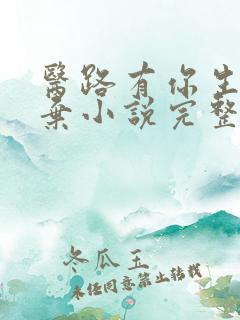 醫路有你生
棄小說完整
冬瓜玉
未經同意禁止轉載